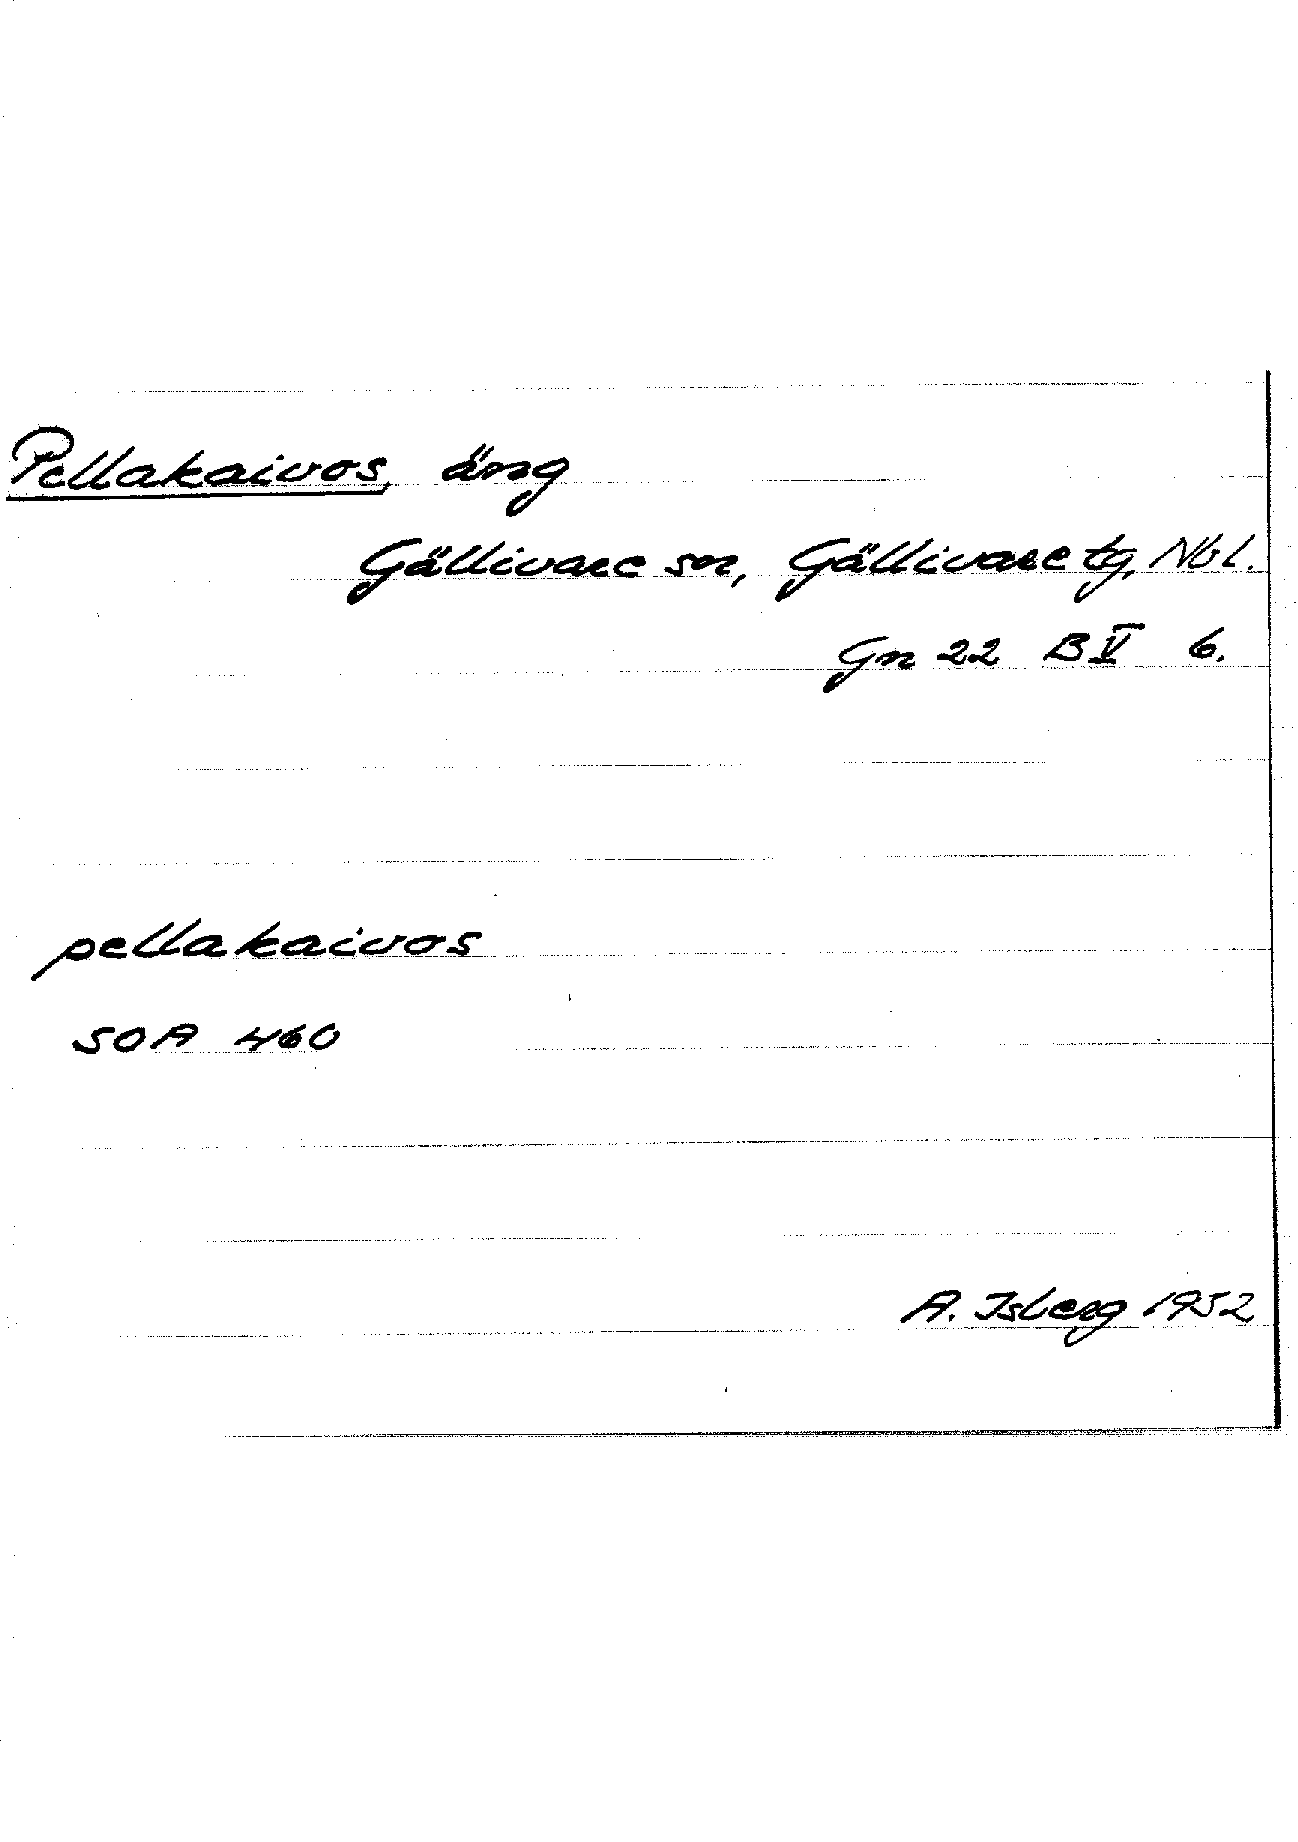 Pellakaivos, äng
Gällivare sn, Gällivare tg, Nbl.
Gn 22 B V 6.
pellakaivos
SOA 460
A. Isberg 1952